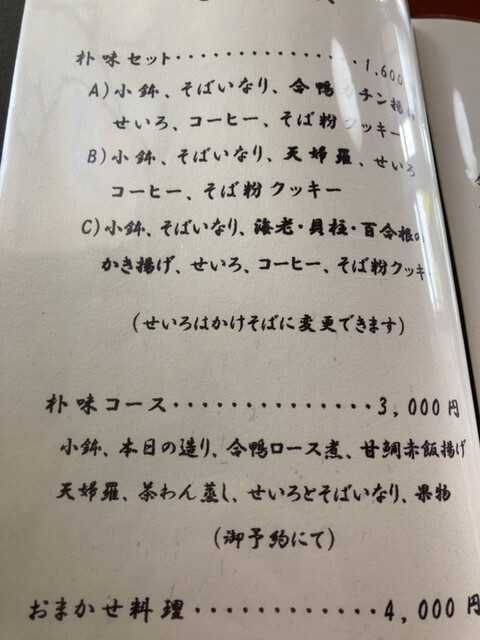 朴味セット・・・・・・・・・・・・・・1,600
A)小鉢、そばいなり、合鴨カチン揚げ
せいろ、コーヒー、そば粉クッキー
B)小鉢、そばいなり、天婦羅、せいろ
コーヒー、そば粉クッキー
C)小鉢、そばいなり、海老・貝柱・百合根の
かき揚げ、せいろ、コーヒー、そば粉クッキ
(せいろはかけそばに変更できます)
朴味コース・・・・・・・・・・・・・・3,000円
小鉢、本日の造り、合鴨ロース煮、甘鯛赤飯揚げ
天婦羅、茶わん蒸し、せいろとそばいなり、果物
(御予約にて)
おまかせ料理・・・・・・・・・・・・4,000円